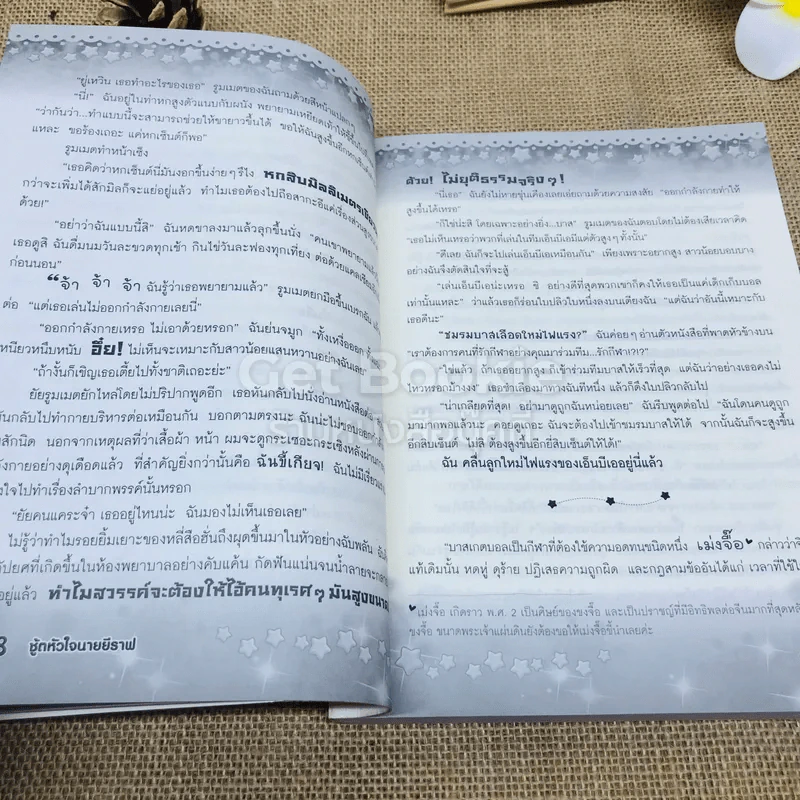 "ยู่เหวิน เธอทำอะไรของเธอ" รูมเมตของฉันถามด้วยสีหน้าแปลกๆ
"นี่!" ฉันอยู่ในท่าหกสูงตัวแนบกับผนัง พยายามเหยียดเท้าให้
"ว่ากันว่า...ทำแบบนี้จะสามารถช่วยให้ขายาวขึ้นได้ ขอให้ฉันสูงขึ้นอีกหกเซ็นต์
แหละ ขอร้องเถอะ แค่หกเซ็นต์ก็พอ"
รูมเมตทำหน้าเซ็ง
"เธอคิดว่าหกเซ็นต์นี่มันงอกขึ้นง่ายๆ รึไง หกสิบมิลลิเมตรเชียว
กว่าจะเพิ่มได้สักมิลก็จะแย่อยู่แล้ว ทำไมเธอต้องไปถือสากะอีแค่เรื่องส่วนสูง
ด้วย!"
"อย่าว่าฉันแบบนี้สิ" ฉันหดขาลงมาแล้วลุกขึ้นนั่ง "คนเขาพยายาม
เธอดูสิ ฉันดื่มนมวันละขวดทุกเช้า กินไข่วันละฟองทุกเที่ยง ต่อด้วยแคลเซียม
ก่อนนอน"
"จ้า จ้า จ้า ฉันรู้ว่าเธอพยายามแล้ว" รูมเมตยกมือขึ้นเบรกฉัน แล้ว
ต่อ "แต่เธอเล่นไม่ออกกำลังกายเลยนี่"
"ออกกำลังกายเหรอ ไม่เอาด้วยหรอก" ฉันย่นจมูก "ทั้งเหงื่อออก ทั้ง
หนียวหนึบหนับ อี๋ย! ไม่เห็นจะเหมาะกับสาวน้อยแสนหวานอย่างฉันเลย"
"ถ้างั้นก็เชิญเธอเตี้ยไปทั้งชาติเถอะย่ะ"
ยัยรูมเมตยักไหล่โดยไม่ปริปากพูดอีก เธอหันกลับไปนั่งอ่านหนังสือ
ันกลับไปทำกายบริหารต่อเหมือนกัน บอกตามตรงนะ ฉันน่ะไม่ชอบออกกำลัง
สักนิด นอกจากเหตุผลที่ว่าเสื้อผ้า หน้า ผมจะดูกระเซอะกระเซิงหลังผ่าน
ลังกายอย่างดุเดือดแล้ว ที่สำคัญยิ่งกว่านั้นคือ ฉันขี้เกียจ! ฉันไม่มี
งใจไปทำเรื่องลำบากพรรค์นั้นหรอก
"ยัยคนแคระจ๋า เธออยู่ไหนน่ะ ฉันมองไม่เห็นเธอเลย"
ไม่รู้ว่าทำไมรอยยิ้มเยาะของหลี่สือฮั่นถึงผุดขึ้นมาในหัวอย่างฉับพลัน
ัปยศที่เกิดขึ้นในห้องพยาบาลอย่างคับแค้น กัดฟันแน่นจนน้ำลายจะ
อยู่แล้ว ทำไมสวรรค์จะต้องให้ไอ้คนทุเรศๆ มันสูงขนาด
8 ชู้ตหัวใจนายยีราฟ
ด้วย! ไม่ยุติธรรมจริงๆ!
"นี่เธอ" ฉันยังไม่หายขุ่นเคืองเลยเอ่ยถามด้วยความสงสัย "ออกกำลังกายทำให้
สูงขึ้นได้เหรอ"
"ก็ใช่น่ะสิ โดยเฉพาะอย่างยิ่ง...บาส" รูมเมตของฉันตอบโดยไม่ต้องเสียเวลาคิด
"เธอไม่เห็นเหรอว่าพวกที่เล่นในทีมเอ็นบีเอมีแต่ตัวสูงๆ ทั้งนั้น"
"ดีเลย ฉันก็จะไปเล่นเอ็นบีเอเหมือนกัน" เพียงเพราะอยากสูง สาวน้อยบอบบาง
อย่างฉันจึงตัดสินใจที่จะสู้
"เล่นเอ็นบีเอน่ะเหรอ ชิ อย่างดีที่สุดพวกเขาก็คงให้เธอเป็นแค่เด็กเก็บบอล
เท่านั้นแหละ" ว่าแล้วเธอก็ร่อนใบปลิวใบหนึ่งลงบนเตียงฉัน "แต่ฉันว่าอันนี้เหมาะกับ
เธอดีนะ"
"ชมรมบาสเลือดใหม่ไฟแรง?" ฉันค่อยๆ อ่านตัวหนังสือที่พาดหัวข้างบน
"เราต้องการคนที่รักกีฬาอย่างคุณมาร่วมทีม...รักกีฬา!?!?"
"ใช่แล้ว ถ้าเธออยากสูง ก็เข้าร่วมทีมบาสให้เร็วที่สุด แต่ฉันว่าอย่างเธอคงไม่
ไหวหรอกม้างงง" เธอชำเลืองมาทางฉันทีหนึ่ง แล้วก็ดึงใบปลิวกลับไป
"น่าเกลียดที่สุด! อย่ามาดูถูกฉันหน่อยเลย" ฉันรีบพูดต่อไป "ฉันโดนคนดูถูก
มามากพอแล้วนะ คอยดูเถอะ ฉันจะต้องไปเข้าชมรมบาสให้ได้ จากนั้นฉันก็จะสูงขึ้น
อีกสิบเซ็นต์ ไม่สิ ต้องสูงขึ้นอีกยี่สิบเซ็นต์ให้ได้!"
ฉัน คลื่นลูกใหม่ไฟแรงของเอ็นบีเออยู่นี่แล้ว
"บาสเกตบอลเป็นกีฬาที่ต้องใช้ความอดทนชนิดหนึ่ง เม่งจื๊อ กล่าวว่าจิ
แท้เดิมนั้น หดหู่ ดุร้าย ปฏิเสธความถูกผิด และกฎสามข้ออันได้แก่ เวลาที่ใช้ใ
เม่งจื๊อ เกิดราว พ.ศ. 2 เป็นศิษย์ของขงจื๊อ และเป็นปราชญ์ที่มีอิทธิพลต่อจีนมากที่สุดหลัง
ขงจื๊อ ขนาดพระเจ้าแผ่นดินยังต้องขอให้เม่งจื๊อชี้นำเลยค่ะ
Get Book